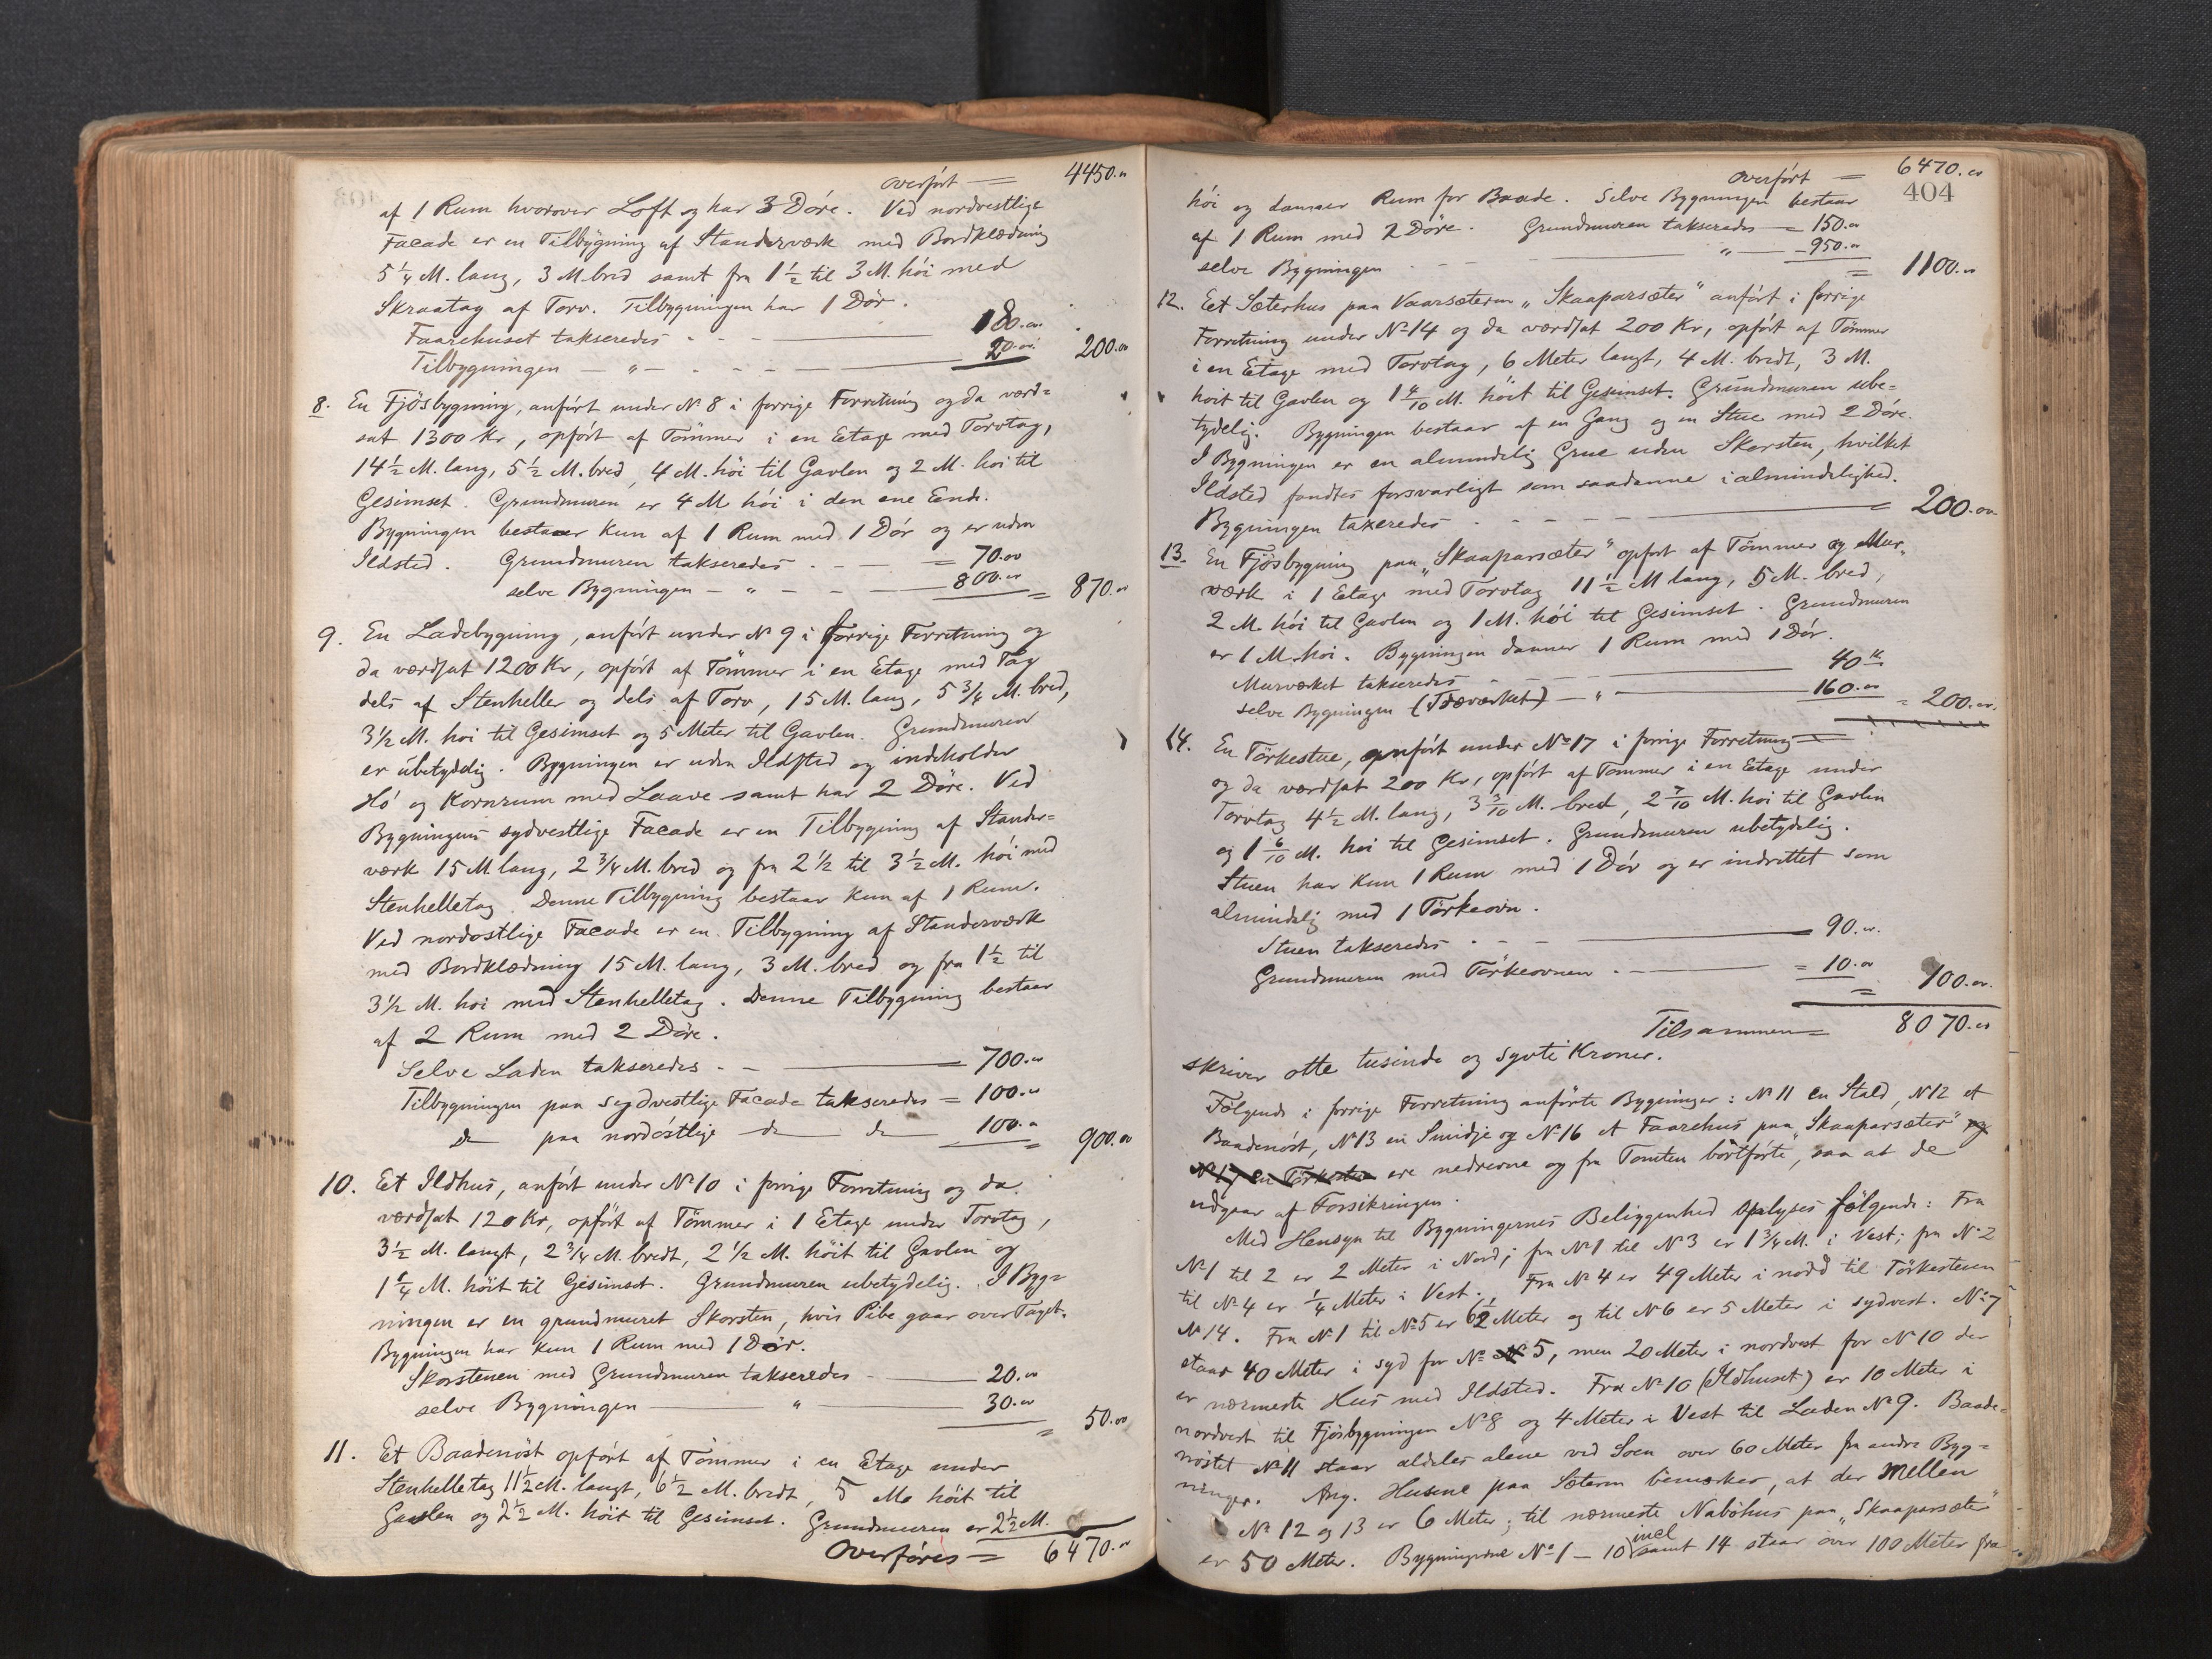 overført = 4450.00
af 1 Rum hvorover Loft og har 3 Döre. Ved nordvestlige
Facade er en Tilbygning af Standerværk med Bordklædning
5 1/4 M. lang, 3 M. bred samt fra 1 1/2 til 3 M. höi med
Skraatag af Torv. Tilbygningen har 1 Dör.
Faarehuset takseredes - - - 180.00
Tilbygningen — „ — - - - 20.00 200.00
8. En Fjösbygning, anfört under No 8 i forrige Forretning og da værd=
sat 1300 Kr, opfört af Tömmer i en Etage med Torvtag,
14 1/2 M. lang, 5 1/2 M. bred, 4 M. höi til Gavlen og 2 M. höi til
Gesimset. Grundmuren er 4 M höi i den ene Ende.
Bygningen bestaaer kun af 1 Rum med 1 Dör og er uden
Ildsted. Grundmuren takseredes - - = 70.00
selve Bygningen - „ - - 800.00 = 870.00
9. En Ladebygning, anfört under No 9 i forrige Forretning og
da værdsat 1200 Kr, opfört af Tömmer i en Etage med Tag
dels af Stenheller og dels af Torv, 15 M. lang, 5 3/4 M. bred,
3 1/2 M. höi til Gesimset og 5 Meter til Gavlen. Grundmuren
er ubetydelig. Bygningen er uden Ildsted og indeholder
Hö og Kornrum med Laave samt har 2 Döre. Ved
Bygningens sydvestlige Facade er en Tilbygning af Stander=
værk 15 M lang, 2 3/4 M. bred og fra 2 1/2 til 3 1/2 M. höi med
Stenhelletag. Denne Tilbygning bestaar kun af 1 Rum.
Ved nordostlige Facade er en Tilbygning af Standerværk
med Bordklædning 15 M. lang, 3 M. bred og fra 1 1/2 til
3 1/2 M. höi med Stenhelletag. Denne Tilbygning bestaar
af 2 Rum med 2 Döre.
Selve Laden takseredes - - 700.00
Tilbygningen paa sydvestlige Facade takseredes = 100.00
do paa nordöstlige do do 100.00 = 900.00
10. Et Ildhus, anfört under No 10 i forrige Forretning og da
værdsat 120 Kr, opfört af Tömmer i 1 Etage under Torvtag,
3 1/2 M. langt, 2 3/4 M. bredt, 2 1/2 M. höit til Gavlen og
1 1/4 M. höit til Gesimset. Grundmuren ubetydelig. I Byg=
ningen er en grundmuret Skorsten, hvis Pibe gaar over Taget.
Bygningen har kun 1 Rum med 1 Dör.
Skorstenen med Grundmuren takseredes - 20.00
selve Bygningen — „ — 30.00 = 50.00
11. Et Baadenöst opfört af Tömmer i en Etage under
Stenhelletag 11 1/2 M. langt, 6 1/2 M. bredt, 5 M. höit til
Gavlen og 2 1/2 M. höit til Gesimset. Grundmuren er 2 1/2 M.
Overföres = 6470.00
overfört = 6470.00
404
höi og danner Rum for Baade. Selve Bygningen bestaar
af 1 Rum med 2 Döre. Grundmuren takseredes = 150.00
selve Bygningen - - „ — 950.00 = 1100.00
12. Eet Sæterhus paa Vaarsæteren „Skaaparsæter“ anfört i forrige
Forretning under No 14 og da værdsat 200 Kr, opfört af Tömmer
i en Etage med Torvtag, 6 Meter langt, 4 M. bredt, 3 M.
höit til Gavlen og 1 4/10 M. höit til Gesimset. Grundmuren ube=
tydelig. Bygningen bestaar af en Gang og en Stue med 2 Döre.
I Bygningen er en almindelig Grue uden Skorsten, hvilket
Ildsted fandtes forsvarligt som saadanne i almindelighed.
Bygningen taxeredes - - - = 200.00
13. En Fjösbygning paa „Skaaparsæter“ opfört af Tömmer og Mur„
værk i 1 Etage med Torvtag 11 1/2 M lang, 5 M. bred,
2 M. höi til Gavlen og 1 M. höi til Gesimset. Grundmuren
er 1 M. höi. Bygningen danner 1 Rum med 1 Dör.
Murværket takseredes - - 40 K
selve Bygningen (Træværket) — „ — 160.00 = 200.00
14. En Törkestue, anfört under No 17 i forrige Forretning
og da værdsat 200 Kr, opfört af Tömmer i en Etage under
Torvtag 4 1/2 M. lang, 3 3/10 M. bred, 2 7/10 M. höi til Gavlen
og 1 6/10 M. höi til Gesimset. Grundmuren ubetydelig.
Stuen har kun 1 Rum med 1 Dör og er indrettet som
almindelig med 1 Törkeovn.
Stuen takseredes - - - 90.00
Grundmuren med Törkeovnen - = 10.00 = 100.00
Tilsammen = 8070.00
skriver otte tusinde og sytti Kroner.
Fölgende i forrige Forretning anförte Bygninger: No 11 en Stald, No 12 et
Baadenöst, No 13 en Smidje og No 16 et Faarehus paa „Skaaparsæter“ og
No 17 en Törkestue ere nedrevne og fra Tomten bortförte, saa at de
udgaar af Forsikringen.
Med Hensyn til Bygningernes Beliggenhed oplyses fölgende: Fra
No 1 til 2 er 2 Meter i Nord; fra No 1 til No 3 er 1 3/4 M. i Vest; fra No 2
til No 4 er 1/4 Meter i Vest. Fra No 4 er 49 Meter i nord til Törkestuen
No 14. Fra No 1 til No 5 er 6 1/2 Meter og til No 6 er 5 Meter i sydvest. No 7
staar 40 Meter i syd for No 5, men 20 Meter i nordvest for No 10 der
er nærmeste Hus med Ildsted. Fra No 10 (Ildhuset) er 10 Meter i
nordvest til Fjösbygningen No 8 og 4 Meter i Vest til Laden No 9. Baade=
nöstet No 11 staar aldeles alene ved Söen over 60 Meter fra andre Byg=
ninger. Ang. Husene paa Sæteren bemærkes, at der mellem
No 12 og 13 er 6 Meter; til nærmeste Nabohus paa „Skaaparsæter“
er 50 Meter. Bygningerne No 1 — 10 incl samt 14 staar over 100 Meter fra